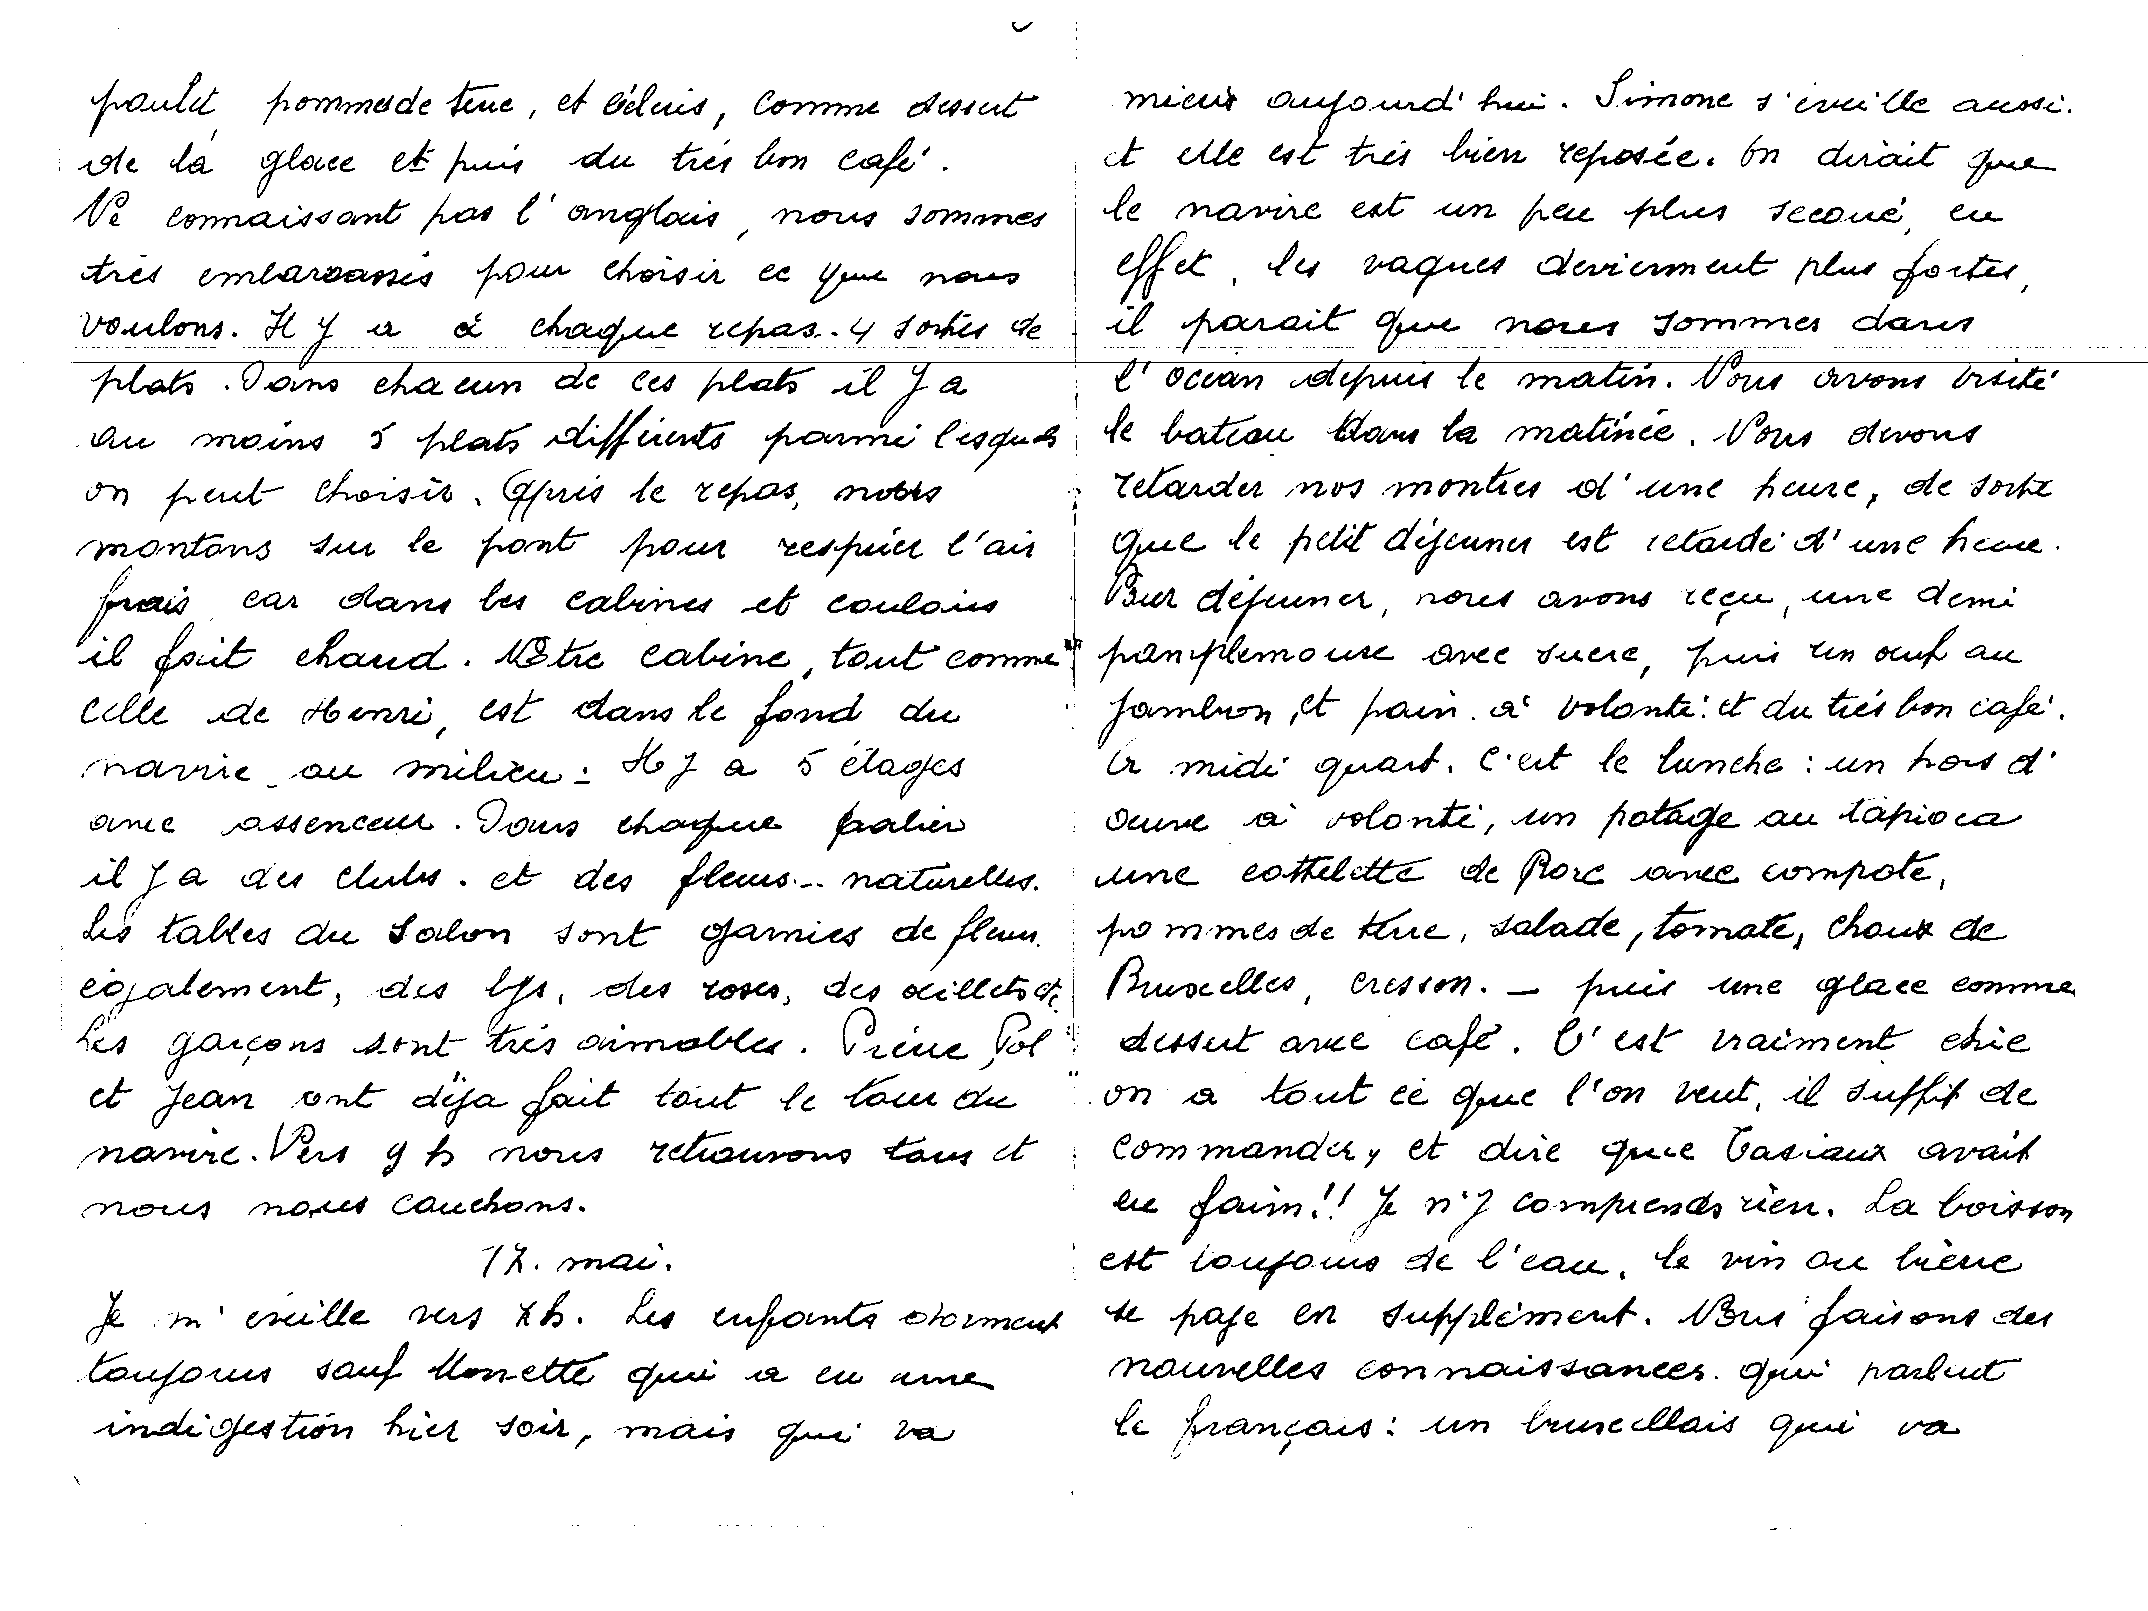 poulet, pommes de terre, et céleris, comme dessert
de la glace et puis du très bon café.
Ne connaissant pas l'anglais, nous sommes
très embarrassés pour choisir ce que nous
voulons. Il y a à chaque repas.. 4 sortes de
plats. Dans chacun de ces plats il y a
au moins 5 plats différents parmi lesquels
on peut choisir. Après le repas, nous
montons sur le pont pour respirer l'air
frais car dans les cabines et couloirs
il fait chaud. Notre cabine, tout comme
celle de Henri, est dans le fond du
navire au milieu: Il y a 5 étages
avec assenceur. Dans chaque palier
il y a des clubs. et des fleurs... naturelles.
Les tables du salon sont garnies de fleurs
également, des lys, des roses, des œillets etc.
Les garçons sont très aimables. Pierre, Pol
et Jean ont déja fait tout le tour du
navire. Vers 9 h nous retrouvons tous et
nous nous couchons.
17. mai.
Je m'éveille vers 7h. Les enfants dorment
toujours sauf Monette qui a eu une
indigestion hier soir, mais qui va
mieux aujourd'hui. Simone s'éveille aussi.
et elle est très bien reposée. On dirait que
le navire est un peu plus secoué, en
effet, les vagues deviennent plus fortes,
il parait que nous sommes dans
l'océan depuis le matin. Nous avons visité
le bateau dans la matinée. Nous devons
retarder nos montres d'une heure, de sorte
que le petit déjeuner est retardé d'une heure.
Pour déjeuner, nous avons reçu, une demi
pamplemouse avec sucre, puis un œuf au
jambon, et pain à volonté. et du très bon café.
A midi quart. C'est le lunche: un hors d'
œuvre à volonté, un potage au tapioca
une cottelette de Porc avec compote,
pommes de terre, salade, tomate, choux de
Bruxelles, cresson. — puis une glace comme
dessert avec café. C'est vraiment chic
on a tout ce que l'on veut, il suffit de
commander, et dire que Tasiaux avait
eu faim!! Je n'y comprends rien. La boisson
est toujours de l'eau, le vin ou bière
se paye en supplément. Nous faisons des
nouvelles connaissances. qui parlent
le français: un bruxellais qui va